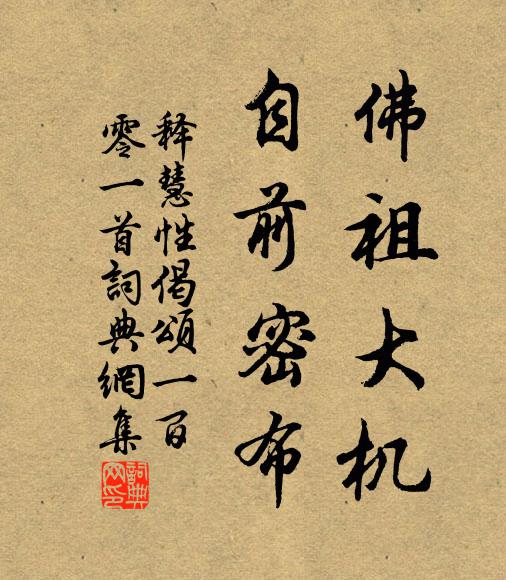 佛祖大机
自前密布
释慧性偈颂一百
零一首詞典網集
詞典
网印